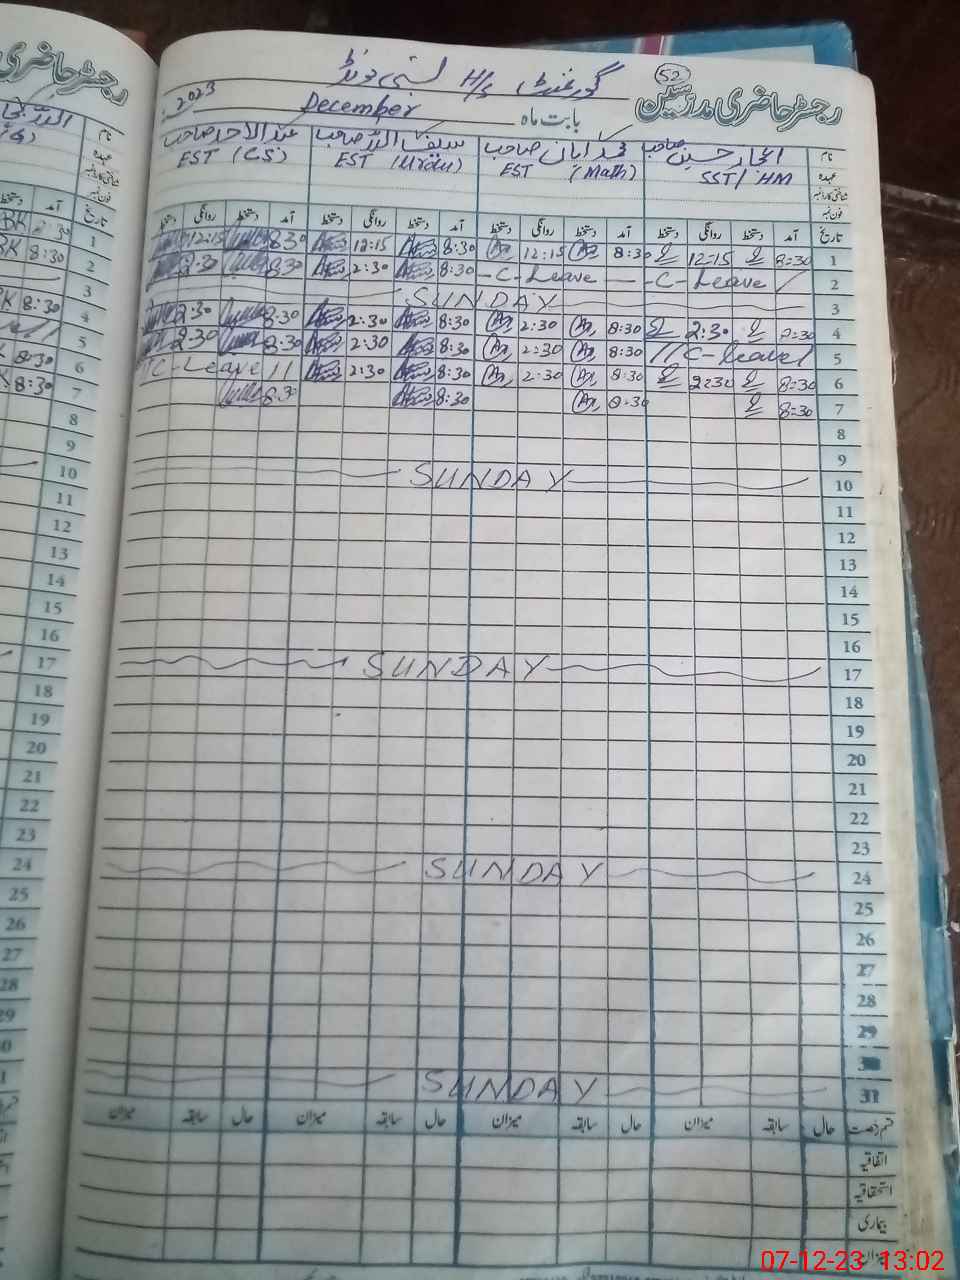 رجسٹر حاضری مدرسین
52
گورنمنٹ H/S
بابت ماہ December 2023
نام
عہدہ
شناختی کارڈ نمبر
فون نمبر
صاحب
SST/HM
محمد صاحب
EST (Math)
صاحب
EST (Urdu)
عبدالاحد صاحب
EST (CS)
تاریخ آمد دستخط روانگی دستخط آمد دستخط روانگی دستخط آمد دستخط روانگی دستخط آمد دستخط روانگی دستخط
1 8:30 12:15 8:30 12:15 8:30 12:15 8:30 12:15
2 C-Leave C-Leave 8:30 2:30 8:30 2:30
3 SUNDAY
4 8:30 2:30 8:30 2:30 8:30 2:30 8:30 2:30
5 C-leave 8:30 2:30 8:30 2:30 8:30 2:30
6 8:30 2:30 8:30 2:30 8:30 2:30 C-Leave
7 8:30 8:30 8:30 8:30
8
9
10 SUNDAY
11
12
13
14
15
16
17 SUNDAY
18
19
20
21
22
23
24 SUNDAY
25
26
27
28
29
30
31 SUNDAY
قسم رخصت حال سابقہ میزان حال سابقہ میزان حال سابقہ میزان حال سابقہ میزان
اتفاقیہ
استحقاقیہ
بیماری
میزان
رجسٹر حاضری
نام
عہدہ
شناختی کارڈ نمبر
فون نمبر
تاریخ آمد دستخط
1 2:30
2 8:30
3
4 8:30
5
6 8:30
7 8:30
8
9
10
11
12
13
14
15
16
17
18
19
20
21
22
23
24
25
26
27
28
29
07-12-23 13:02